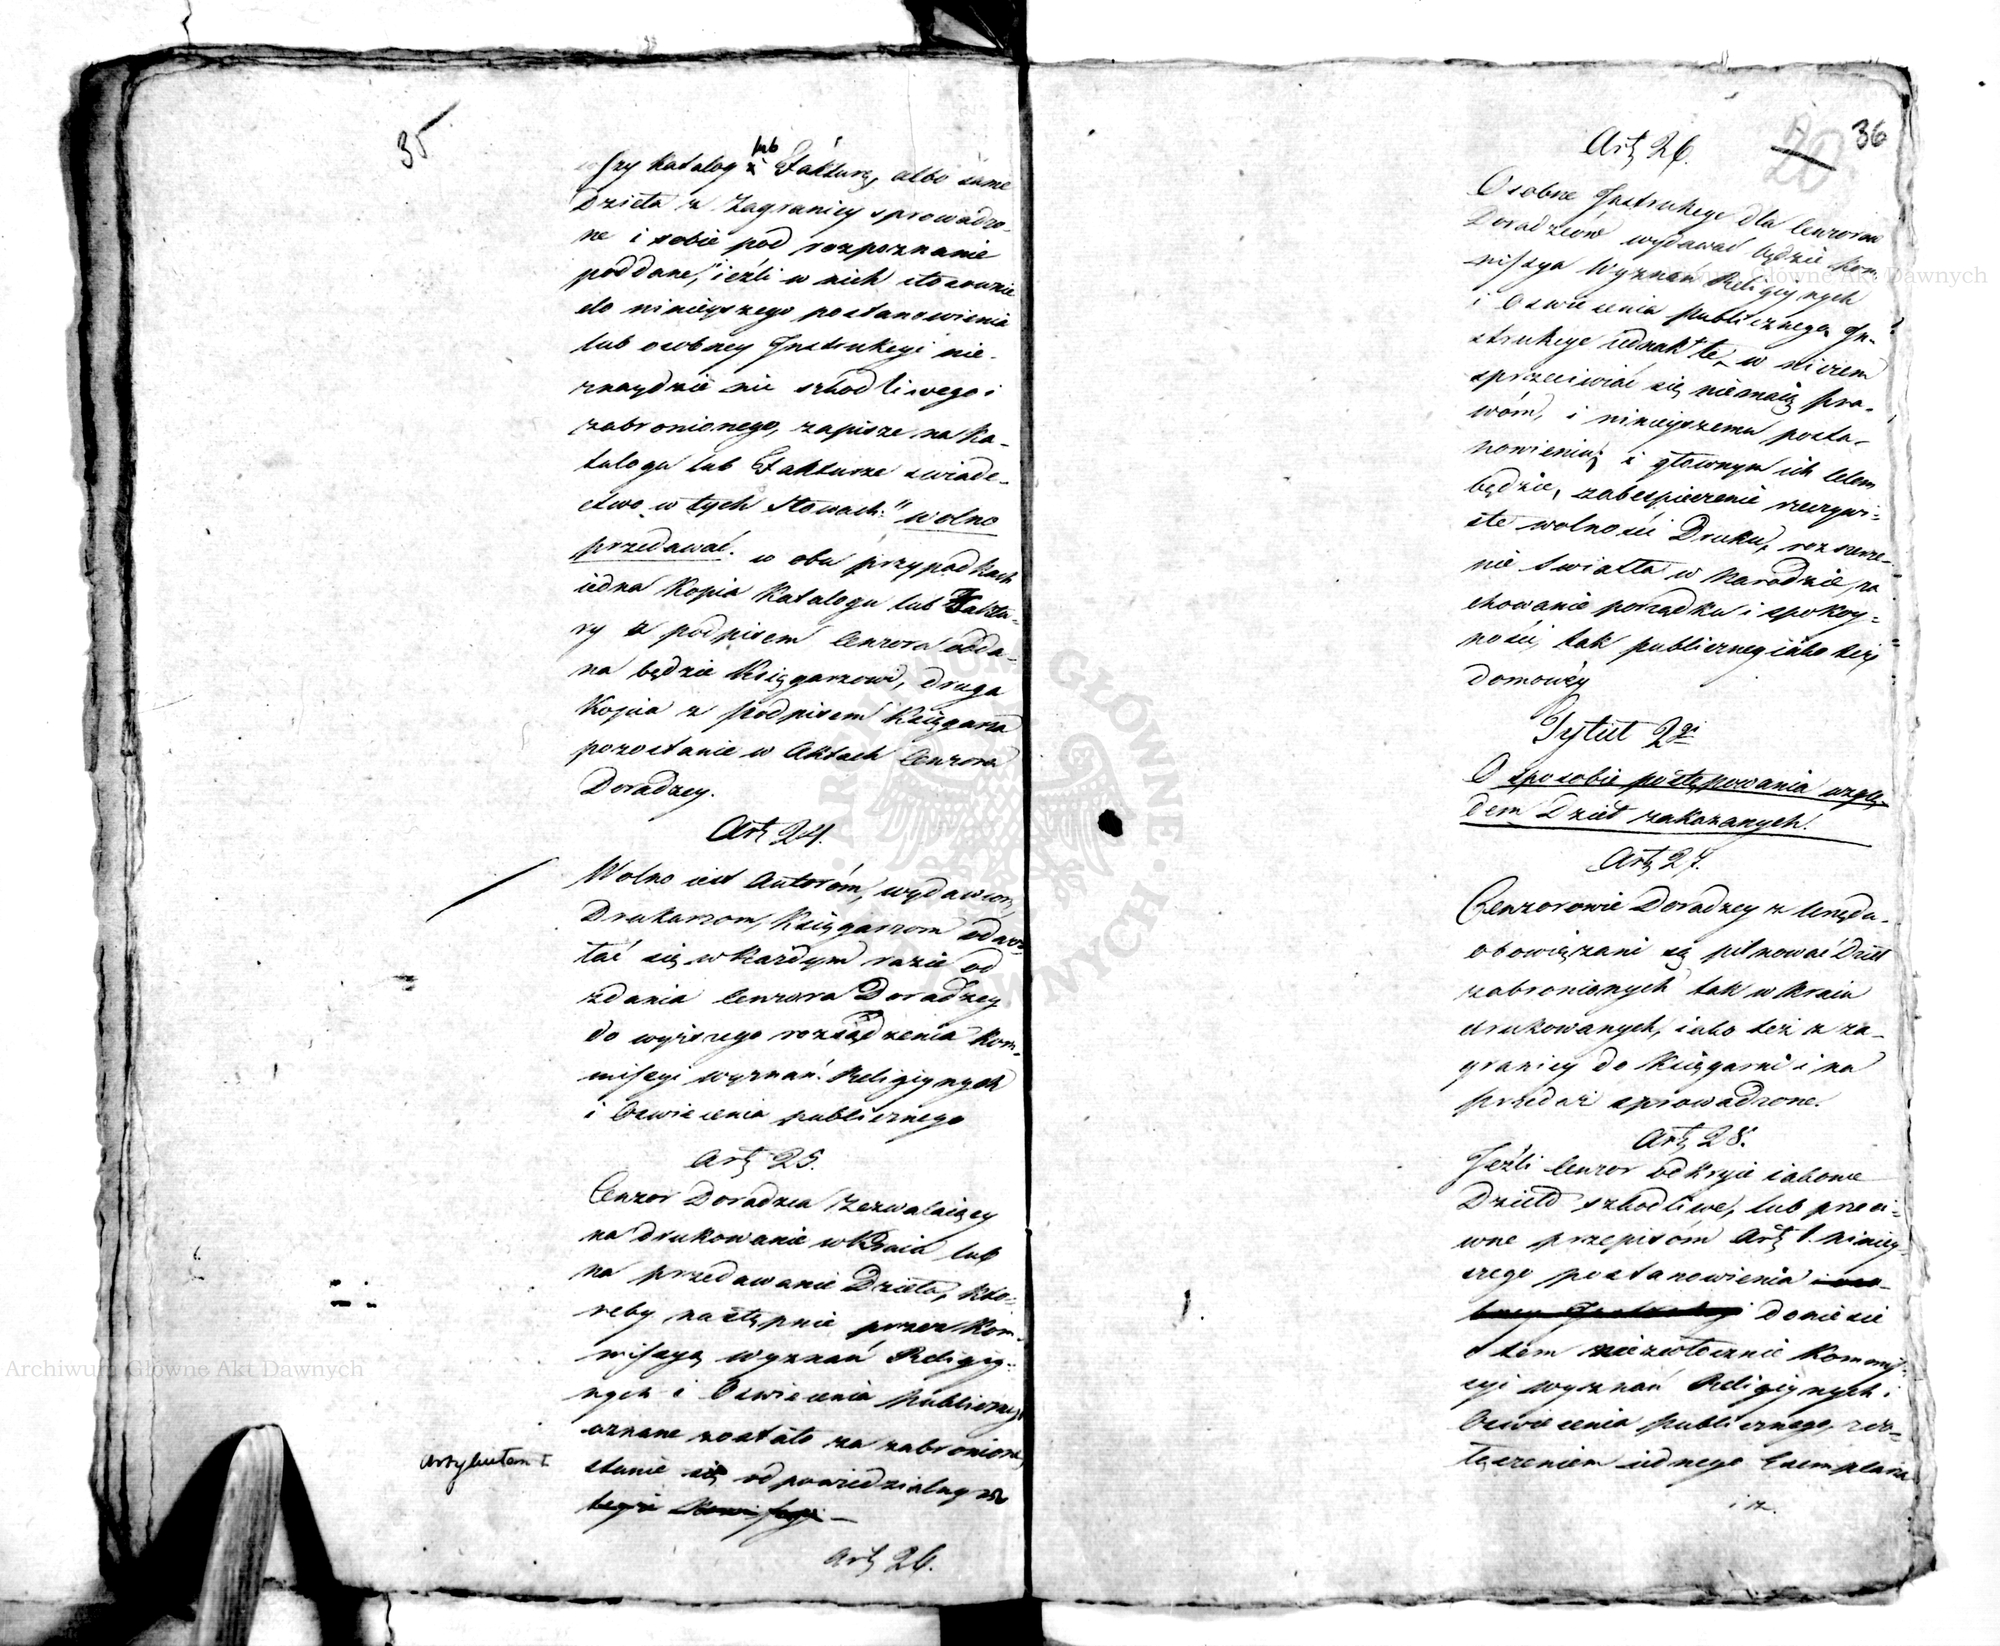 35
szy katalog lub Fakturę, albo same
Dzieła z Zagranicy sprowadzo-
ne i sobie pod rozpoznanie
poddane, ieźli w nich stosownie
do ninieyszego postanowienia
lub osobney Instrukcyi nie-
znaydzie nic szkodliwego i
zabronionego, zapisze na Ka-
talogu lub Fakturze świade-
ctwo w tych słowach: "wolno
przedawać. w obu przypadkach
iedna Kopia Katalogu lub Faktu-
ry z podpisem Cenzora odda-
na będzie Księgarzowi, druga
Kopia z podpisem Księgarza
pozostanie w Aktach Cenzora
Doradzcy.
Art 24.
Wolno iest Autoróm, wydawcom,
Drukarzom, Księgarzom odwo-
łać się w każdym razie od
zdania Cenzora Doradzcy
do wyższego rozsądzenia Kom-
missyi wyznań Religiynych
i Oswiecenia publicznego
Art 25.
Cenzor Doradzca zezwalaiący
na drukowanie w Kraiu lub
na przedawanie Dzieła, któ-
reby następnie przez Kom-
missyą wyznań Religiy-
nych i Oswiecenia Publicznego
uznane zostało za zabronione,
stanie się odpowiedzialnym
Art 26.
36
20
Art 26.
Osobne Instrukcye dla Cenzorów
Doradzców wydawać będzie Kom-
missya Wyznań Religiynych
i Oswiecenia publicznego. In-
strukcye iednak te, w niczem
sprzeciwiać się niemaią pra-
wóm, i ninieyszemu posta-
nowieniu; i głownym ich celem
będzie, zabespieczenie rzeczywi-
stey wolności Druku, rozszerze-
nie światła w Narodzie, za-
chowanie porządku i spokoy-
ności, tak publiczney iako też
domowéy
Tytuł 2gi
O sposobie postępowania wzglę-
dem Dzieł zakazanych.
Art 27.
Cenzorowie Doradzcy z Urzędu
obowiązani są pilnować Dzieł
zabronionych tak w kraiu
drukowanych, iako też z za-
granicy do Księgarni i na
przedaż sprowadzone.
Art 28.
Jeźli Cenzor odkryie iakowe
Dzieło szkodliwe, lub przeci-
wne przepisóm Art 1. niniey-
szego postanowienia
doniesie
o tém niezwłocznie Kommis-
syi wyznań Religiynych i
Oswiecenia publicznego, z za-
łączeniem iednego Exemplarza
i z.
Archiwum Główne Akt Dawnych
Archiwum Główne Akt Dawnych
ARCHIWUM GŁÓWNE AKT DAWNYCH